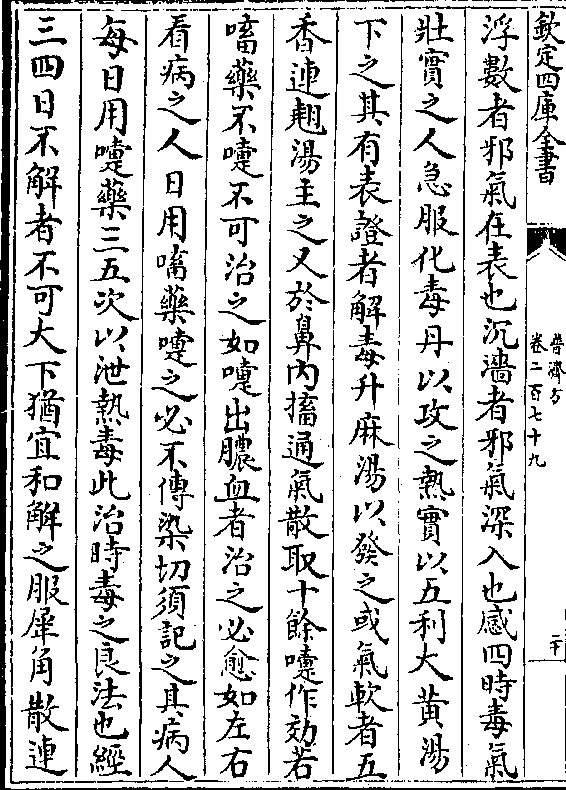 欽定四庫全書
普濟方
卷二百七十九
二十
浮數者邪氣在表也沉濇者邪氣深入也感四時毒氣
壯實之人急服化毒丹以攻之熱實以五利大黄湯
下之其有表證者解毒升麻湯以發之或氣軟者五
香連翹湯主之又於鼻内搐通氣散取十餘嚏作効若
㗜藥不嚏不可治之如嚏出膿血者治之必愈如左右
看病之人日用㗜藥嚏之必不傳染切須記之其病人
每日用嚏藥三五次以泄熱毒此治時毒之良法也經
三四日不解者不可大下猶宜和解之服犀角散連